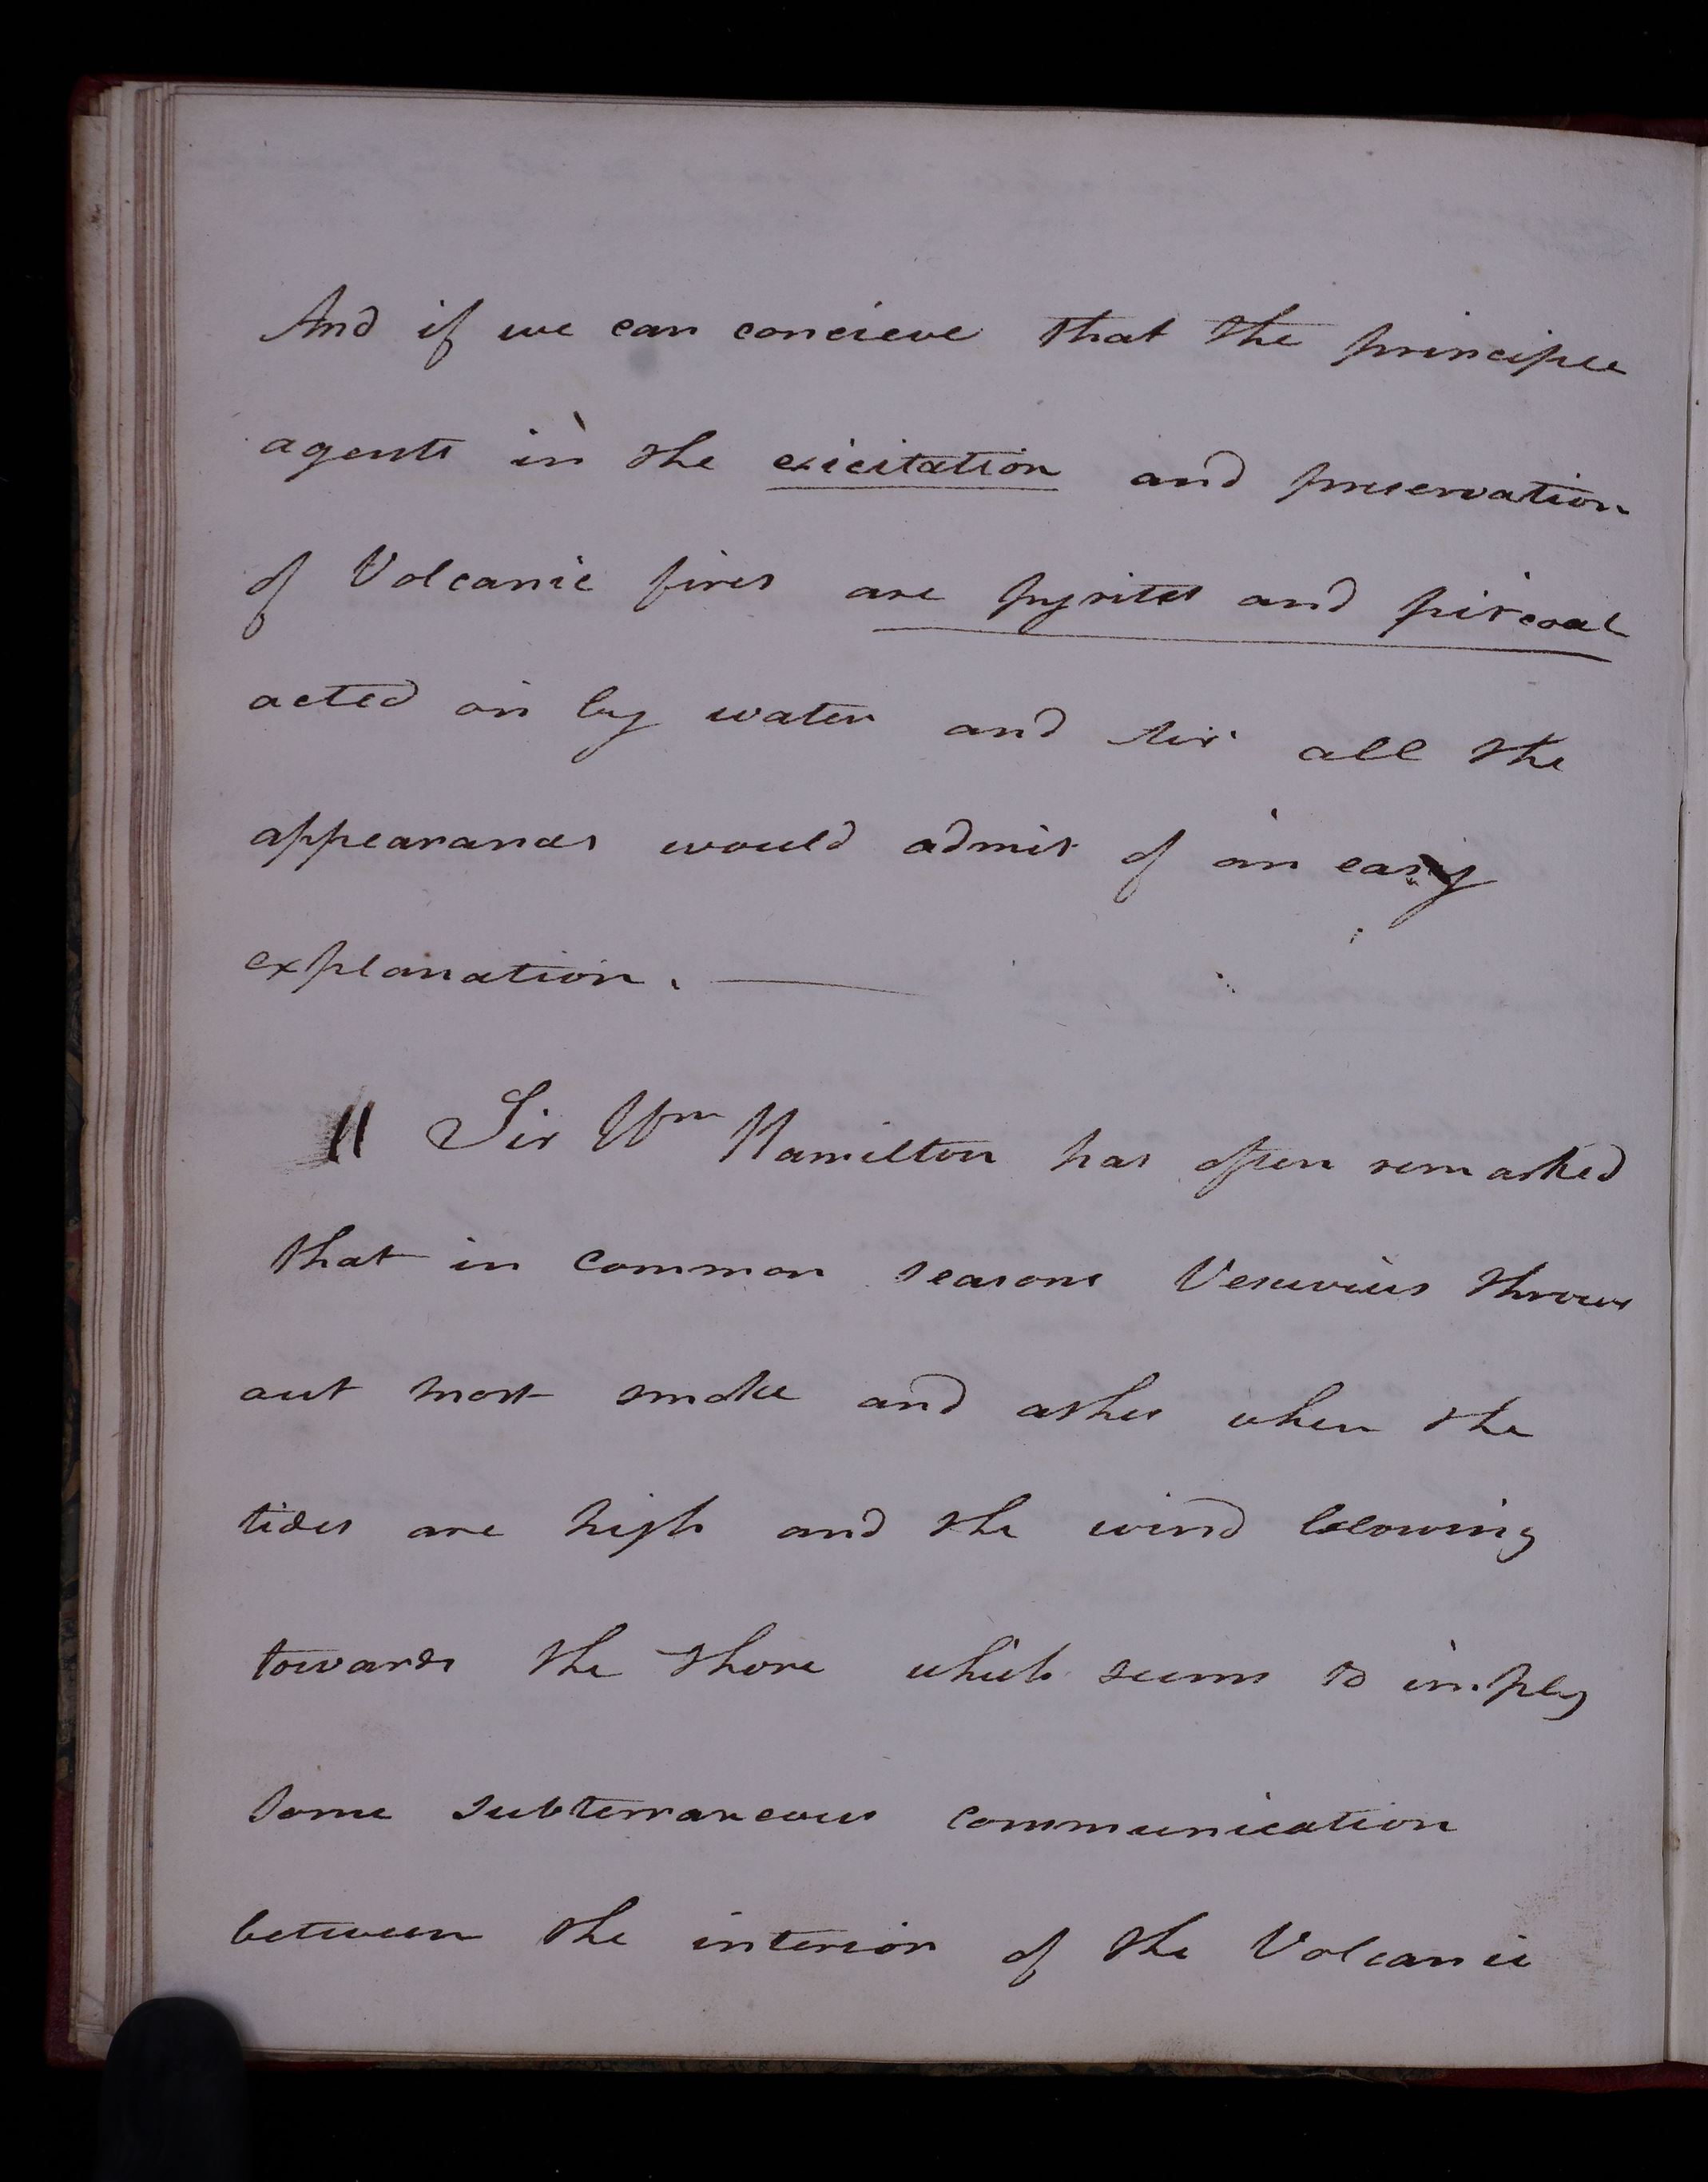 And if we can concieve that the principle
agents in the exicitation and preservation
of Volcanic fires are pyrites and pitcoal
acted on by water and Air all the
appearances would admit of an easy
explanation. —
// Sir Wm Hamilton has often remarked
that in common seasons Vesuvius throws
out most smoke and ashes when the
tides are high and the wind blowing
towards the shore which seems to imply
some subterraneous communication
between the interior of the Volcanic